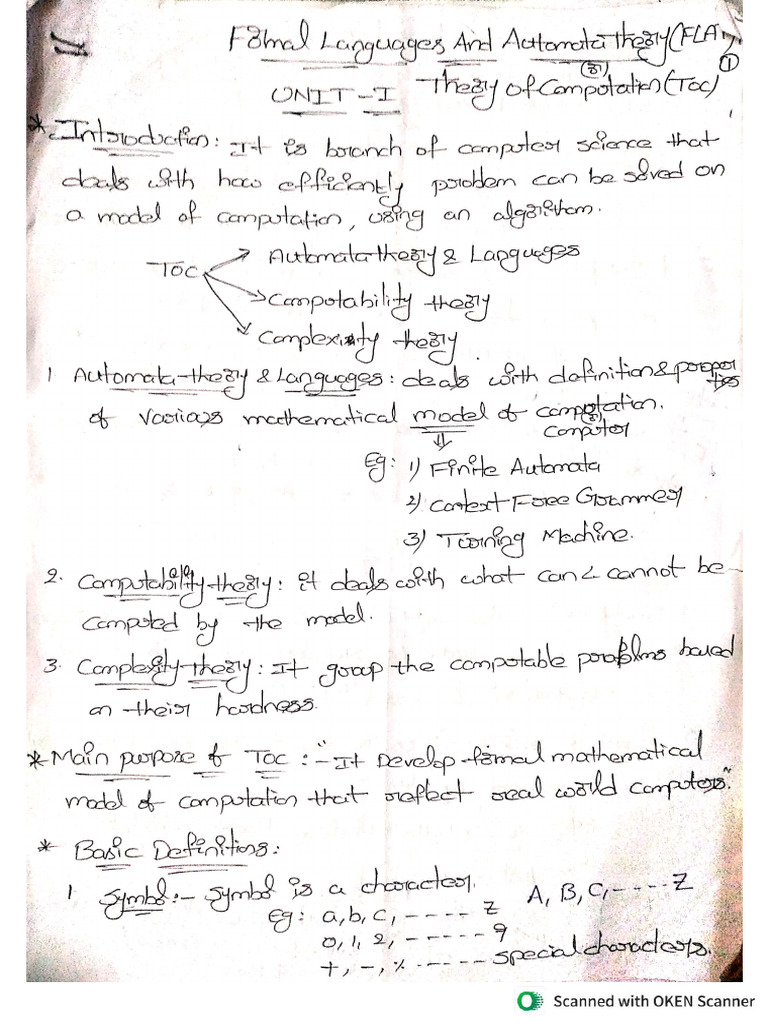 Formal Languages And Automata Theory (FLA)
(or) 1
UNIT-I Theory of Computation (TOC)
* Introduction: It is branch of computer science that
deals with how efficiently problem can be solved on
a model of computation, using an algorithm.
Automata theory & Languages
TOC
Computability theory
Complexity theory.
1 Automata-theory & Languages: deals with definition & proper
ties
of various mathematical model of computation.
(or)
computer
Eg: 1) Finite Automata
2) Context Free Grammer
3) Turning Machine.
2. Computability-theory: it deals with what can & cannot be
computed by the model.
3. Complexity-theory: It group the computable problms based
on their hardness.
* Main purpose of TOC :- "It Develop formal mathematical
model of computation that reflect real world computers."
* Basic Definitions:
1. Symbol:- Symbol is a character.
Eg: a, b, c, ---- z A, B, C, ---- Z
0, 1, 2, ----- 9
+, -, % ----- special characters.
Scanned with OKEN Scanner